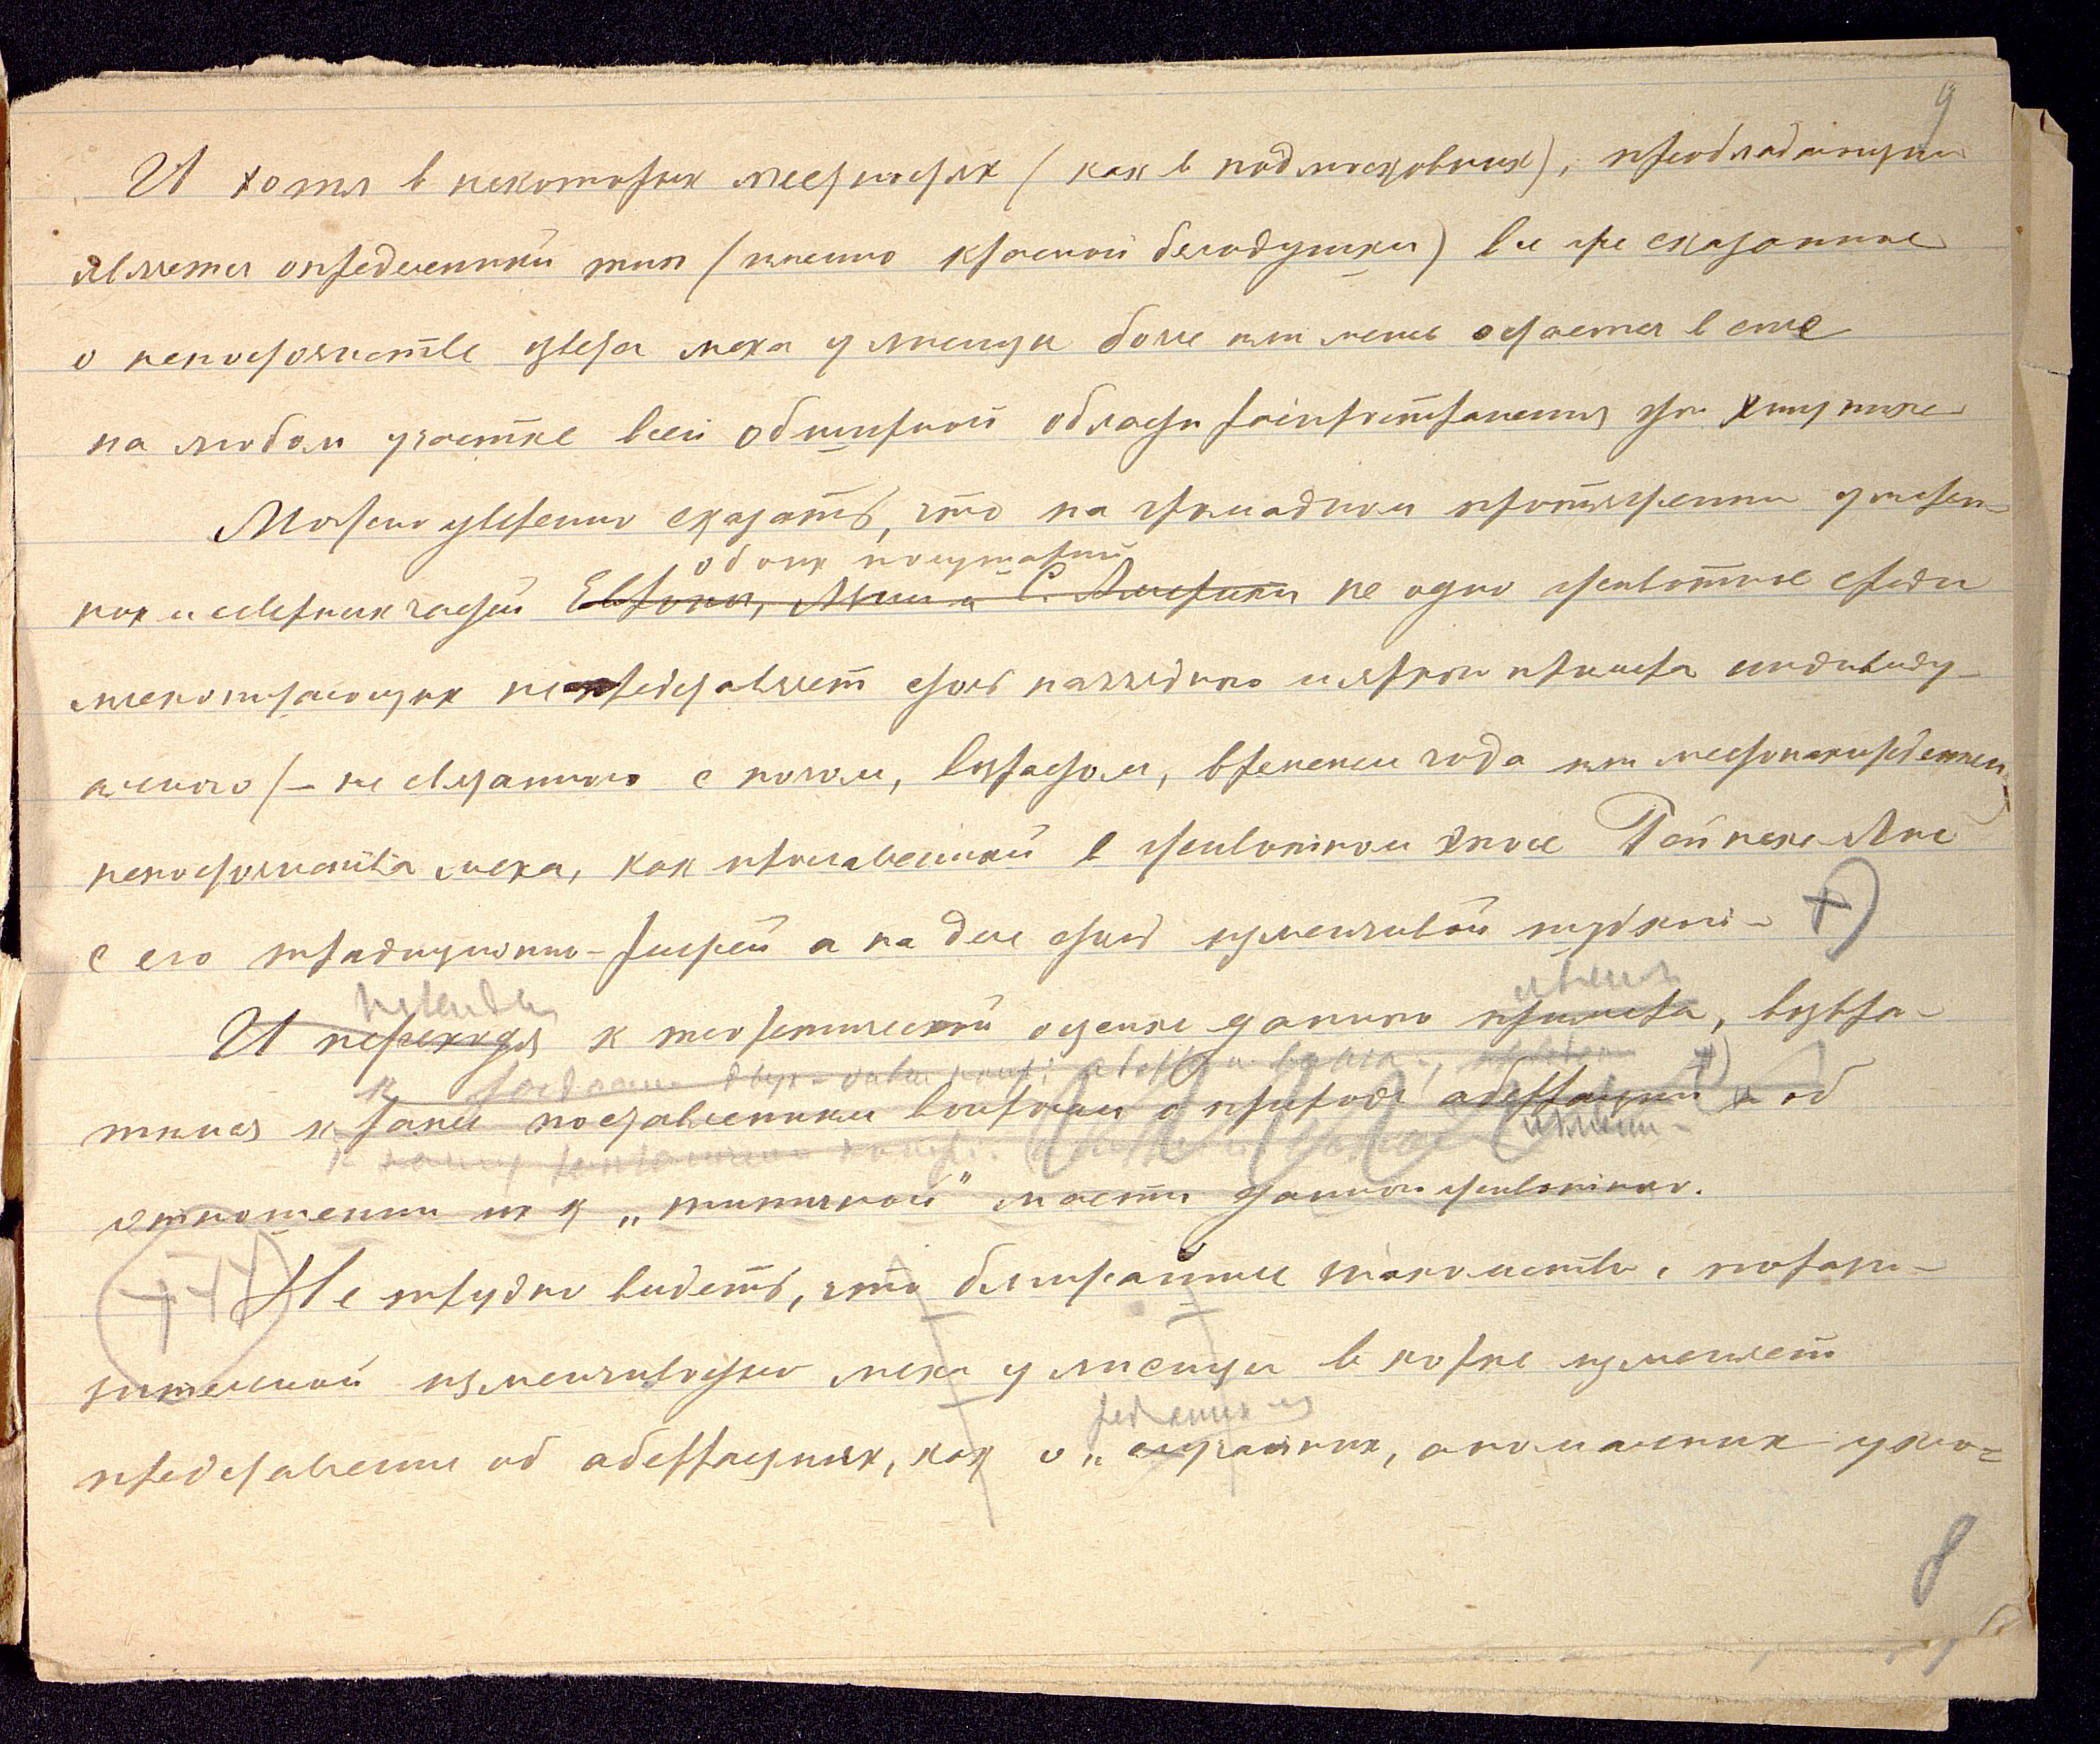 9
И хотя в некоторых местностях (как в подмосковных), преобладающим
является определенный тип (именно красной белодушки) все же сказанное
о непостоянстве цвета меха у лисицы более или менее остается в силе
на любом участке всей обширной области распространения этого хищника
Можно уверенно сказать, что на громадном протяжении умерен-
обоих полушарий
ных и северных частей Европы, Азии и С. Америки не одно животное среди
млекопитающих не представляет столь наглядного и яркого примера индивиду-
ального (– не связанного с полом, возрастом, временем года или местонахождением)
непостоянства меха, как прославленный в животном эпосе Рейнеке Лис
с его традиционно-рыжей а на деле столь изменчивой шубкой –
явления
И переходя к теоретической оценке данного примера, возвра-
тимся к ранее поставленным вопросам о природе аберраций и об
отношении их к „типичной" масти данного животного.
Не трудно видеть, что ближайшее знакомство с порази-
тельной изменчивостью меха у лисицы в корне изменяет
редких
представление об аберрациях, как о „случайных, аномальных укло-
8